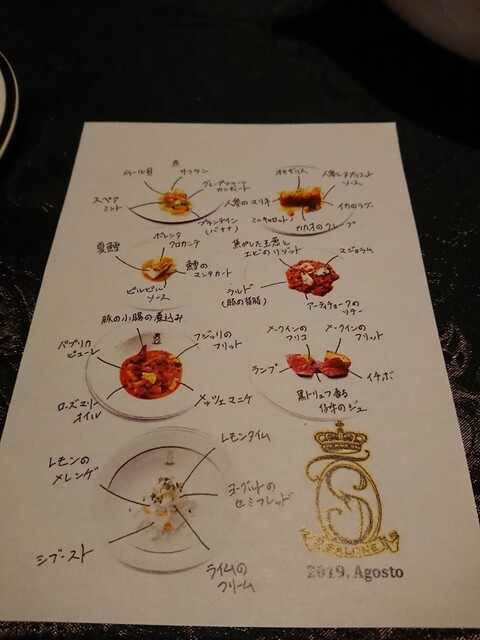 ムール貝
サフラン
グレープフルーツ
スペア
ミント
プランテイン
(バナナ)
オキザリス
ソース
人参のエリキ
イカのラグー
ミニキャロット
カカオのクレープ
夏鱈
ポレンタ
クロカンテ
鱈の
マンテカート
ピルピル
ソース
焦がした玉蜀し
エビのリゾット
マジョラム
ラルド
(豚の背脂)
アーティチョークの
ソテー
豚の小腸の煮込み
パプリカ
ピューレ
フジッリの
フリット
ローズマリー
オイル
メッツェマニケ
メークインの
フリコ
メークインの
フリット
ランプ
イチボ
黒トリュフ香る
仔牛のジュ
レモンの
メレンゲ
レモンタイム
ヨーグルトの
セミフレッド
シブースト
ライムの
クリーム
S
SALONE
2019. Agosto